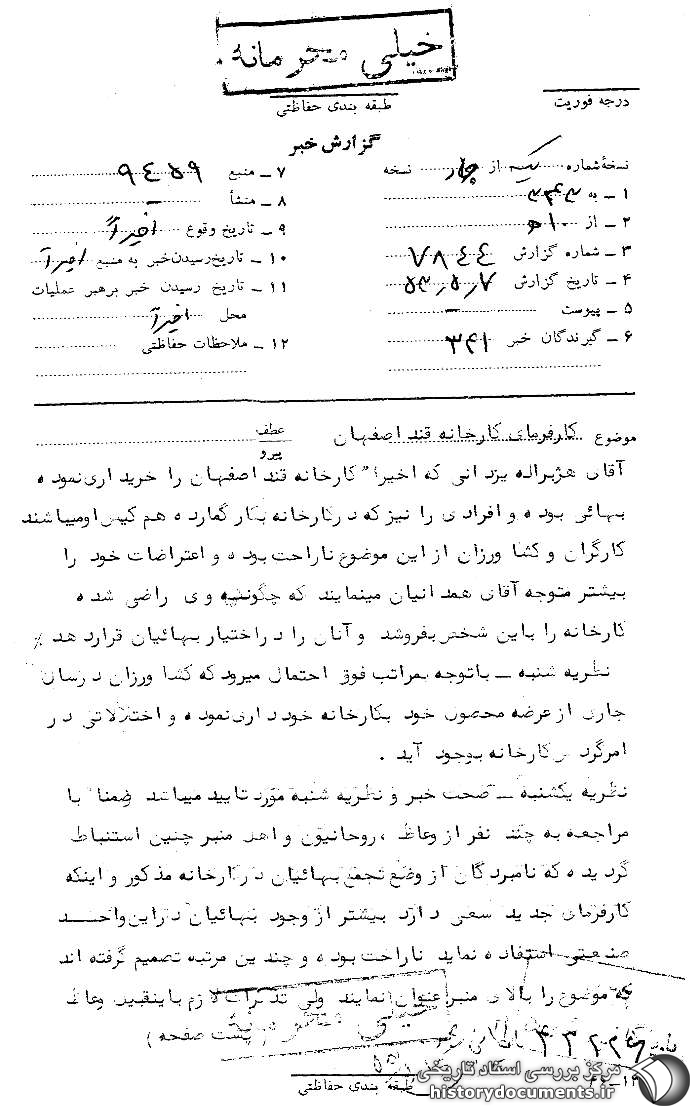 خیلی محرمانه
طبقه بندی حفاظتی
درجه فوریت
گزارش خبر
نسخهٔ شماره یک از چهار نسخه
۱ ـ به ۳۴۳
۲ ـ از ۱۰ ه‍
۳ ـ شماره گزارش ۷۸۴۴
۴ ـ تاریخ گزارش ۵۳٫۵٫۷
۵ ـ پیوست ـ
۶ ـ گیرندگان خبر ۳۴۱
۷ ـ منبع ۹۴۵۹
۸ ـ منشأ ـ
۹ ـ تاریخ وقوع اخیراً
۱۰ ـ تاریخ رسیدن خبر به منبع اخیراً
۱۱ ـ تاریخ رسیدن خبر برهبر عملیات
محل اخیراً
۱۲ ـ ملاحظات حفاظتی
موضوع کارفرمای کارخانه قند اصفهان
عطف
پیرو
آقای هژبراله یزدانی که اخیرا" کارخانه قند اصفهان را خریداری نموده
بهائی بوده و افرادی را نیز که در کارخانه بکار گمارده هم کیش او میباشند
کارگران و کشاورزان از این موضوع ناراحت بوده و اعتراضات خود را
بیشتر متوجه آقای همدانیان مینمایند که چگونه وی راضی شده
کارخانه را باین شخص بفروشد و آنان را در اختیار بهائیان قرار دهد ٪
نظریه شنبه ـ باتوجه بمراتب فوق احتمال میرود که کشاورزان درسال
جاری از عرضه محصول خود بکارخانه خودداری نموده و اختلالاتی در
امر گردش کارخانه بوجود آید .
نظریه یکشنبه ـ صحت خبر و نظریه شنبه مورد تایید میباشد ضمنا" با
مراجعه به چند نفر از وعاظ ، روحانیون و اهل منبر چنین استنباط
گردیده که نامبردگان از وضع تجمع بهائیان در کارخانه مذکور و اینکه
کارفرمای جدید سعی دارد بیشتر از وجود بهائیان در این واحد
صنعتی استفاده نماید ناراحت بوده و چندین مرتبه تصمیم گرفته اند
که موضوع را بالای منبر عنوان نمایند ولی تذکرات لازم باینقبیل وعاظ
( پشت صفحه )
خیلی محرمانه
۴۳۲۰۲۶
طبقه بندی حفاظتی
مرکز بررسی اسناد تاریخی
historydocuments.ir